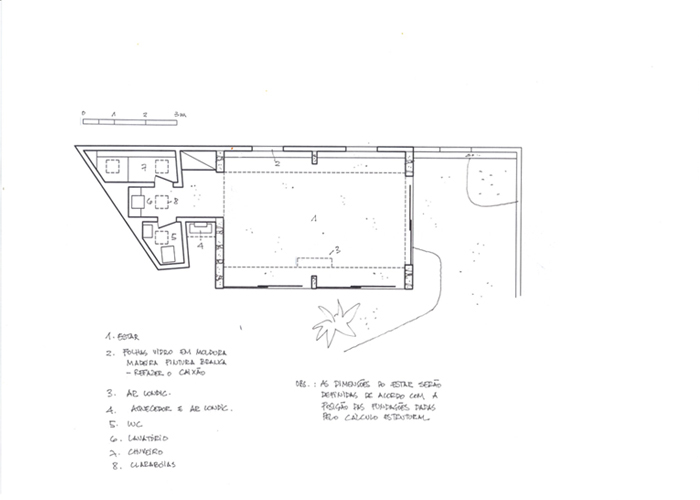 0 1 2 3m
2
7
6 8
1
5
4
3
1. ESTAR
2. FOLHAS VIDRO EM MOLDURA
MADEIRA PINTURA BRANCA
- REFAZER O CAIXÃO
3. AR CONDIC.
4. AQUECEDOR E AR CONDIC.
5. WC
6. LAVATÓRIO
7. CHUVEIRO
8. CLARABOIAS
OBS.: AS DIMENSÕES DO ESTAR SERÃO
DEFINIDAS DE ACORDO COM A
POSIÇÃO DAS FUNDAÇÕES DADAS
PELO CÁLCULO ESTRUTURAL